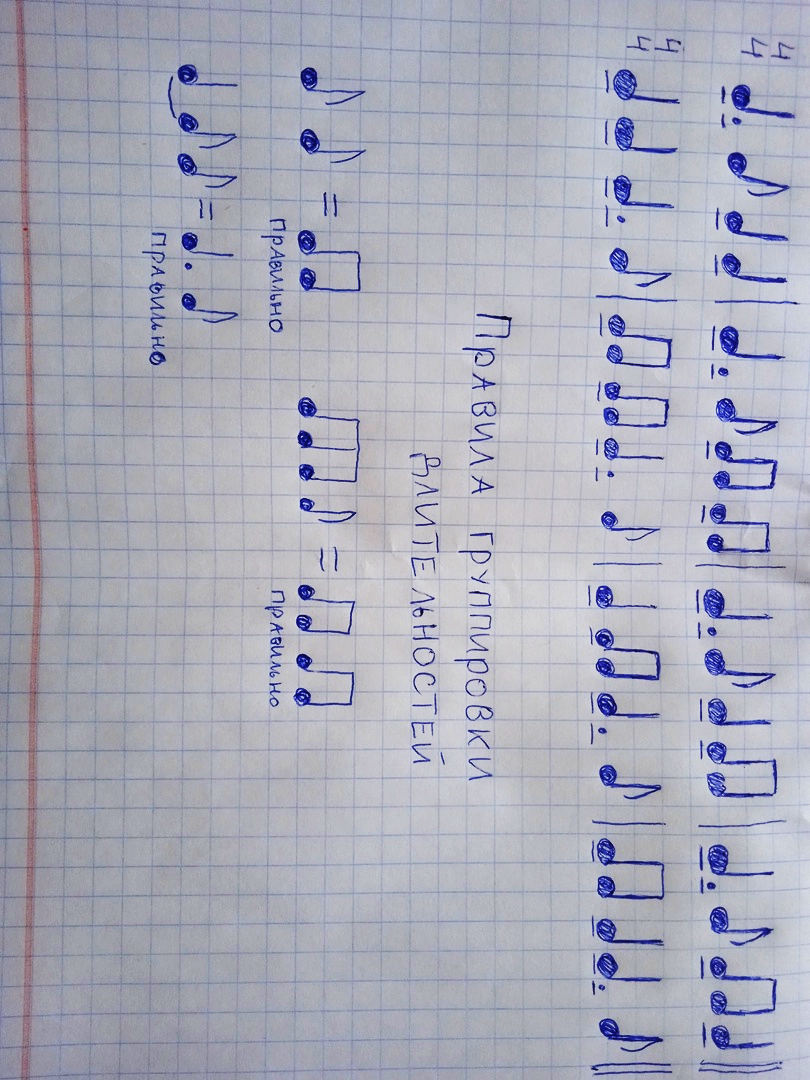 4
4
4
4
Правила группировки
длительностей
правильно правильно
правильно